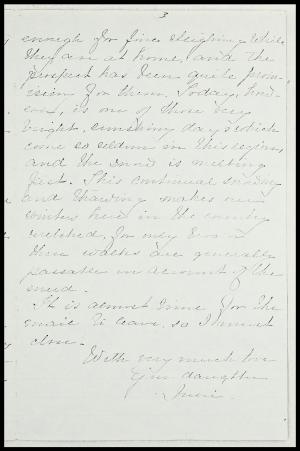 3
enough for fine sleighing while
they are at home, and the
prospect has been quite prom-
ising for them. Today, how-
ever, is one of those very
bright, sunshiny days which
come so seldom in this region,
and the snow is melting
fast. This continual snowing
and thawing makes our
winters here in the country
wretched, for only
then walks are generally
passable on account of the
mud.
It is almost time for the
mail to leave, so I must
close.
With very much love
Your daughter